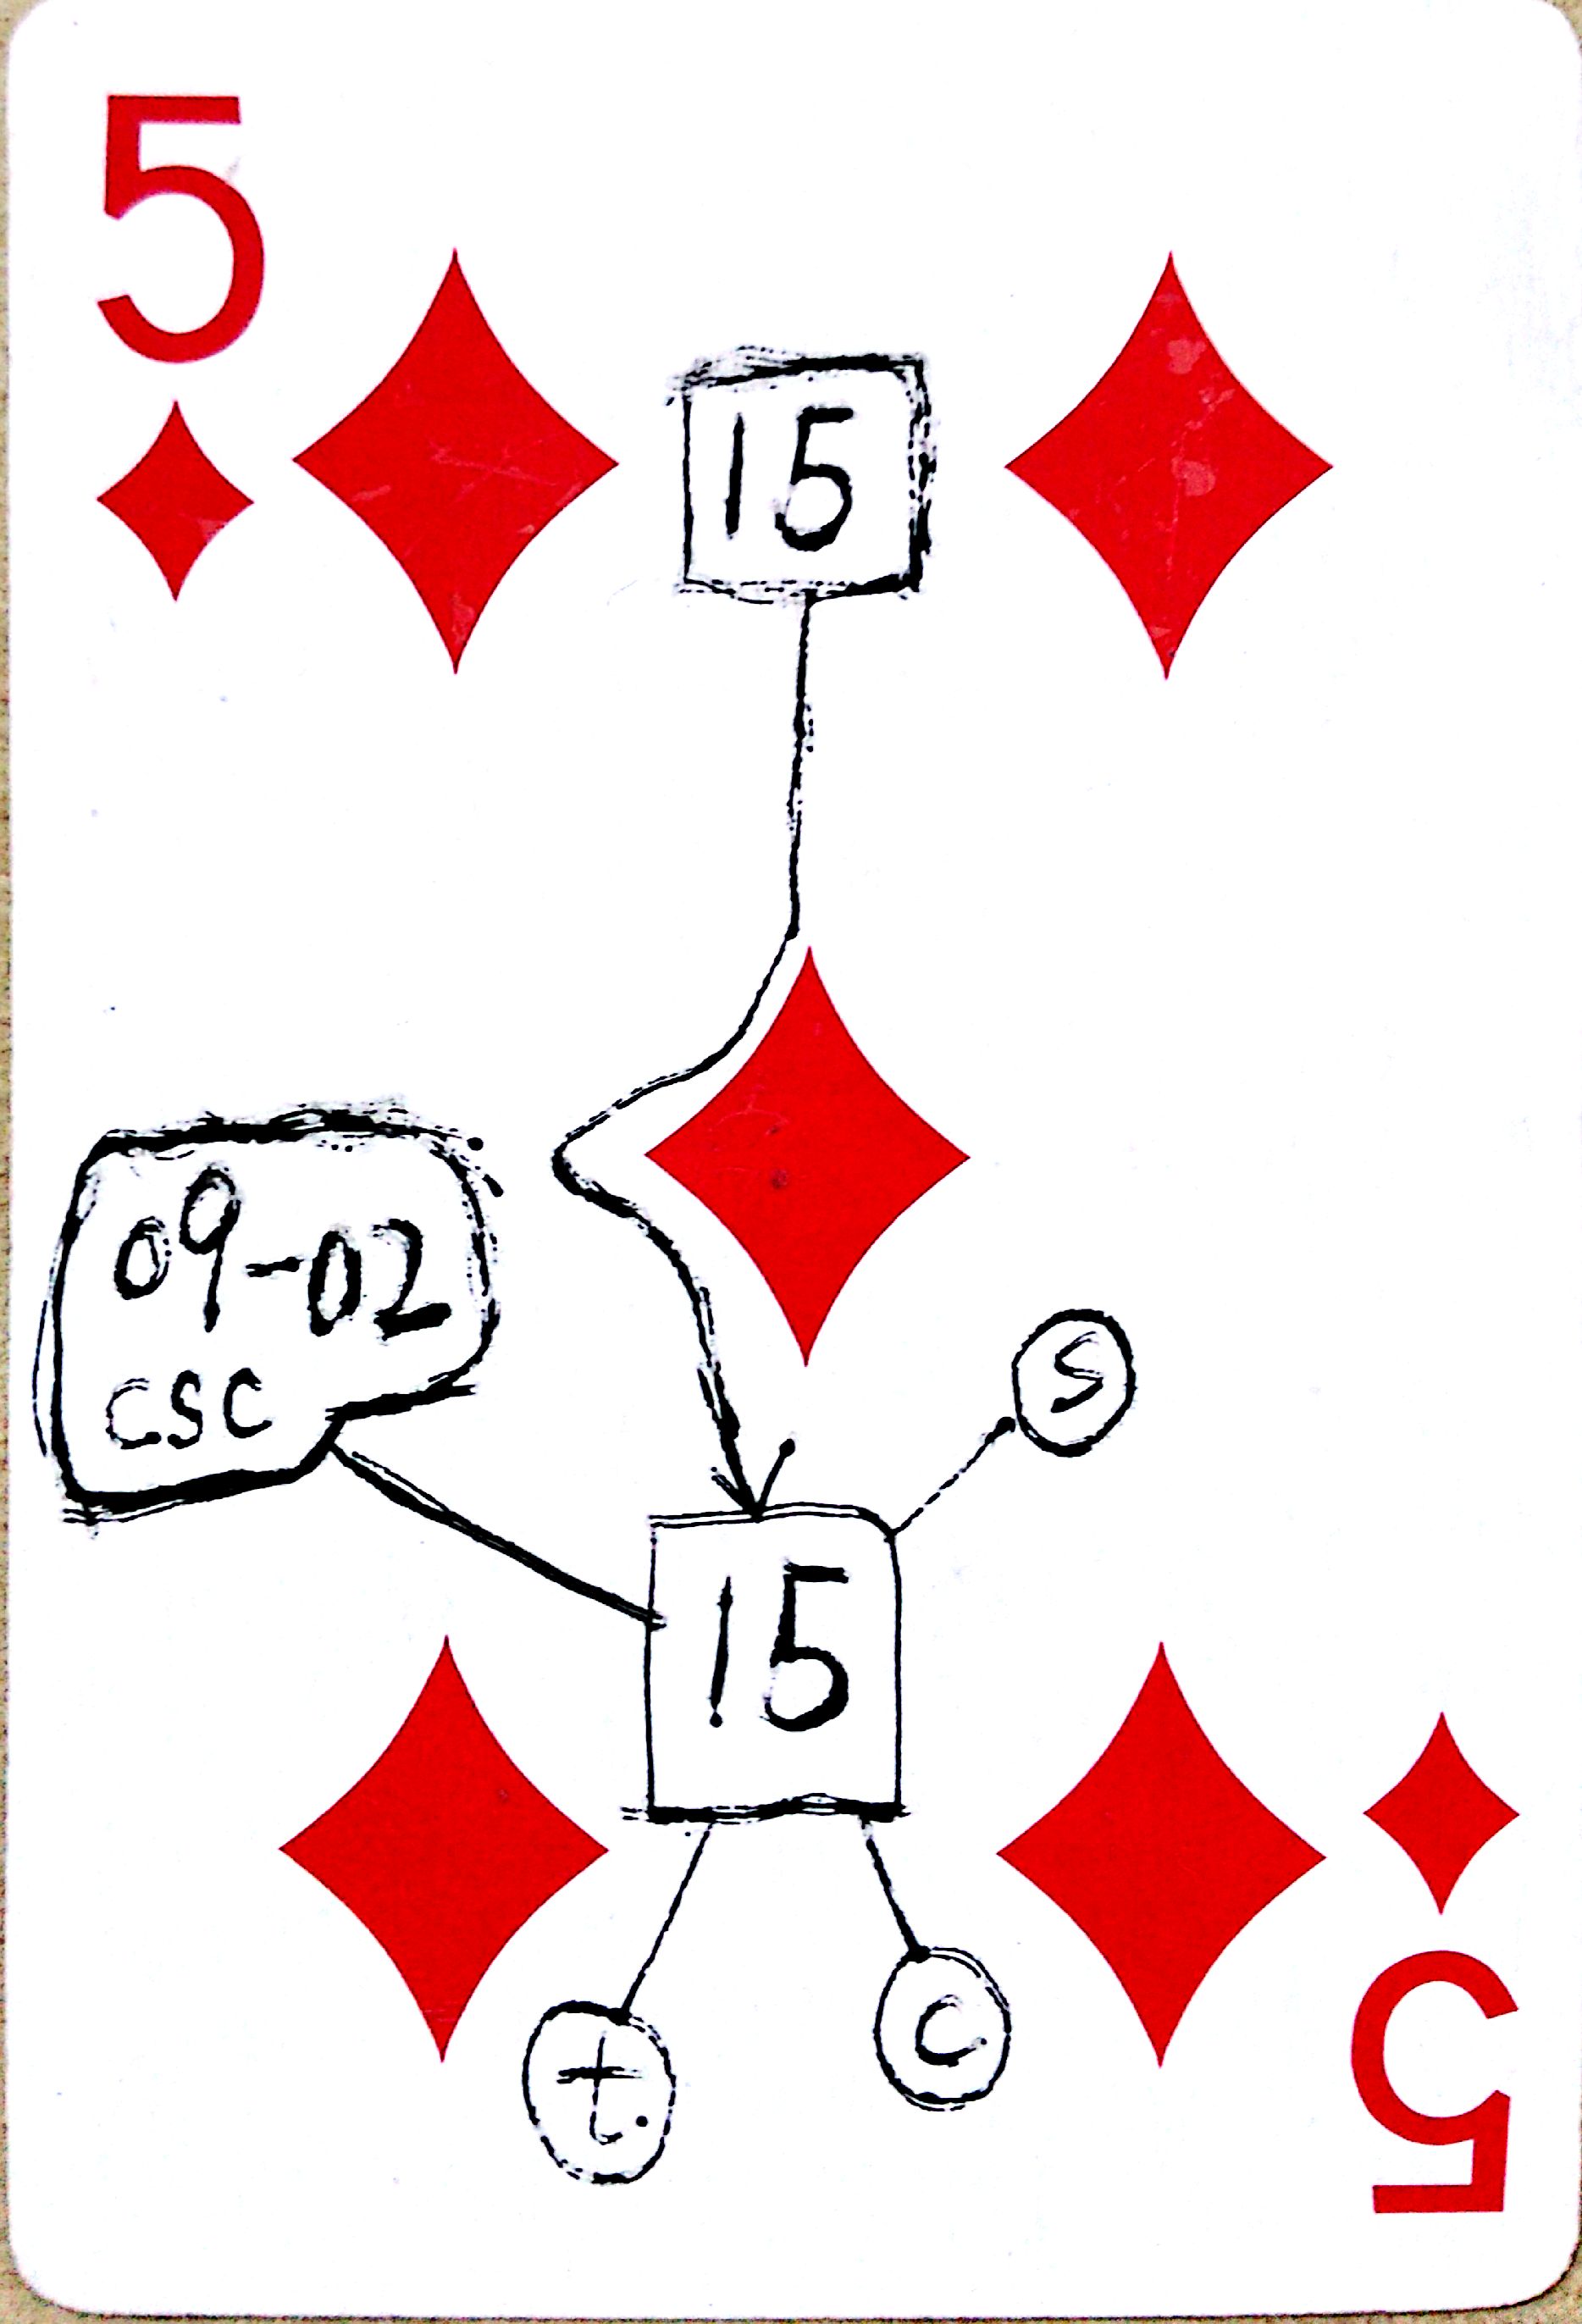 5
15
09-02
CSC
S
15
t.
C
5